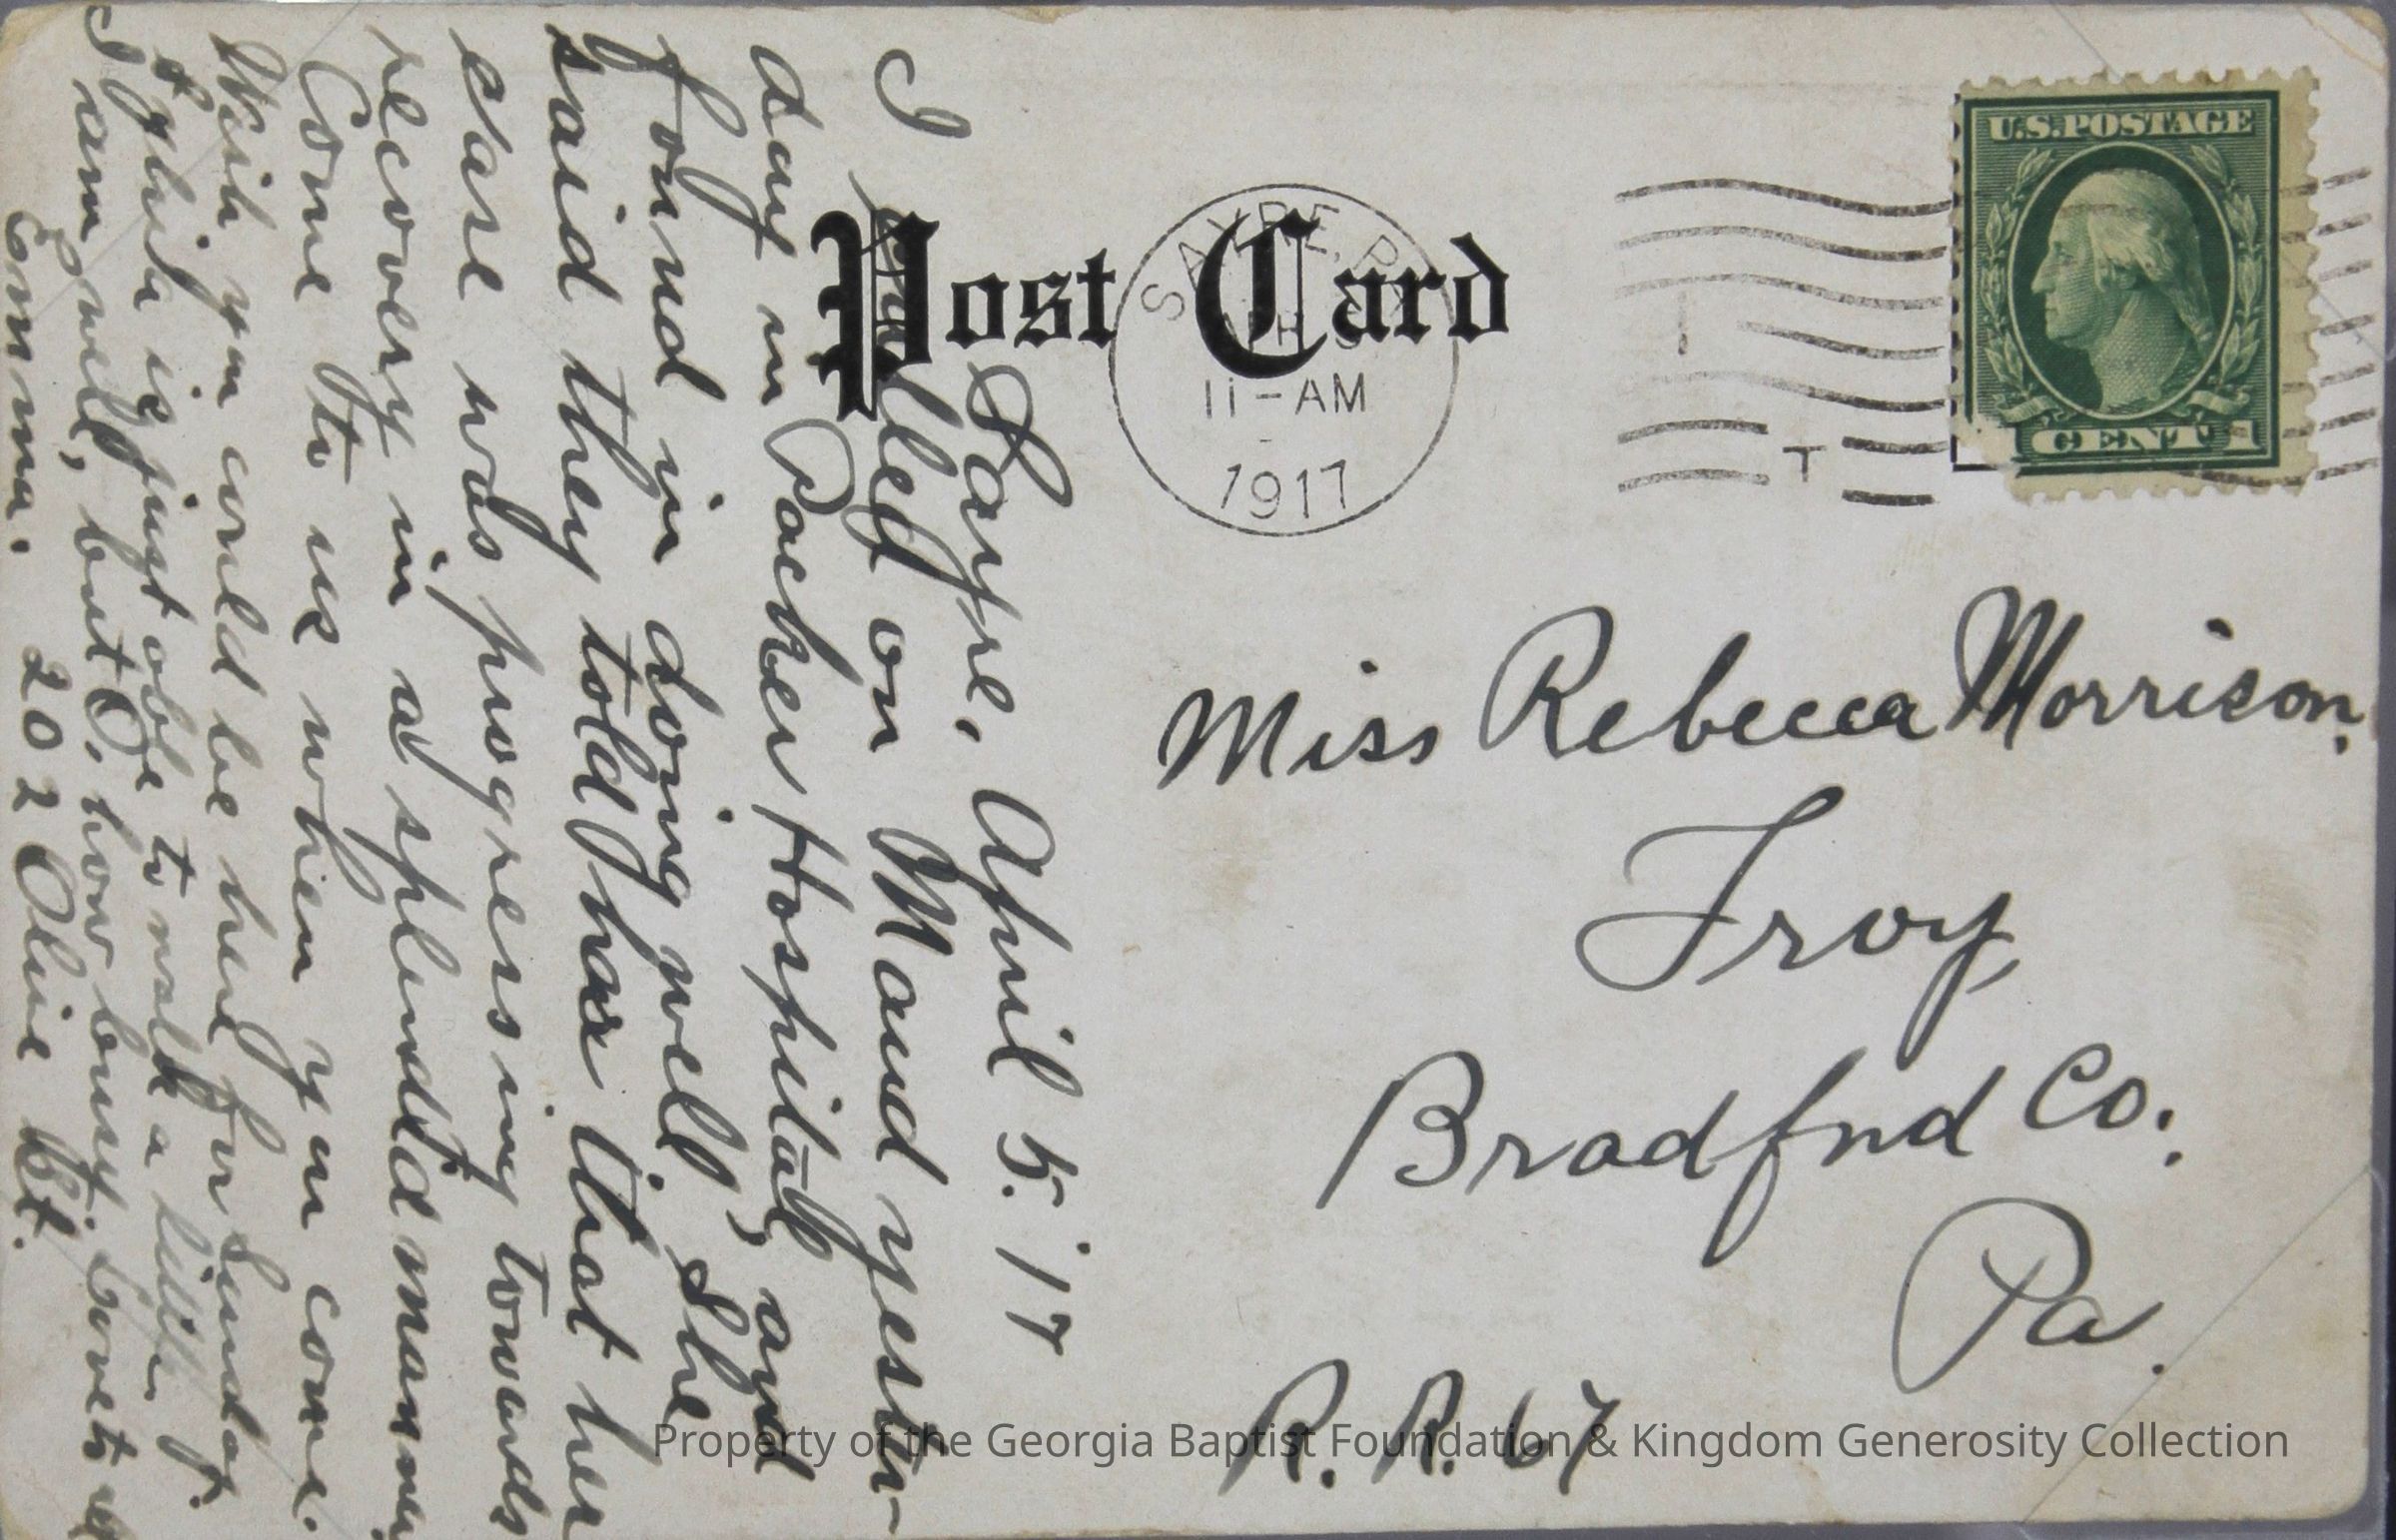 Post Card
SAYRE, PA
11-AM
1917
T
U.S. POSTAGE
1 CENT 1
Miss Rebecca Morrison.
Troy
Bradford Co.
Pa.
R. R. 67
Sayre, April 5. '17
I called on Maud yester-
day in Packer Hospital, and
found in doing well, she
said they told her that her
case was progressing towards
recovery in a splendid manner
Come to us when you come.
Wish you could be here for Sunday.
is just able to walk a little
I am well, but O, how busy. Love to all
Emma. 202 Olive St.
Property of the Georgia Baptist Foundation & Kingdom Generosity Collection